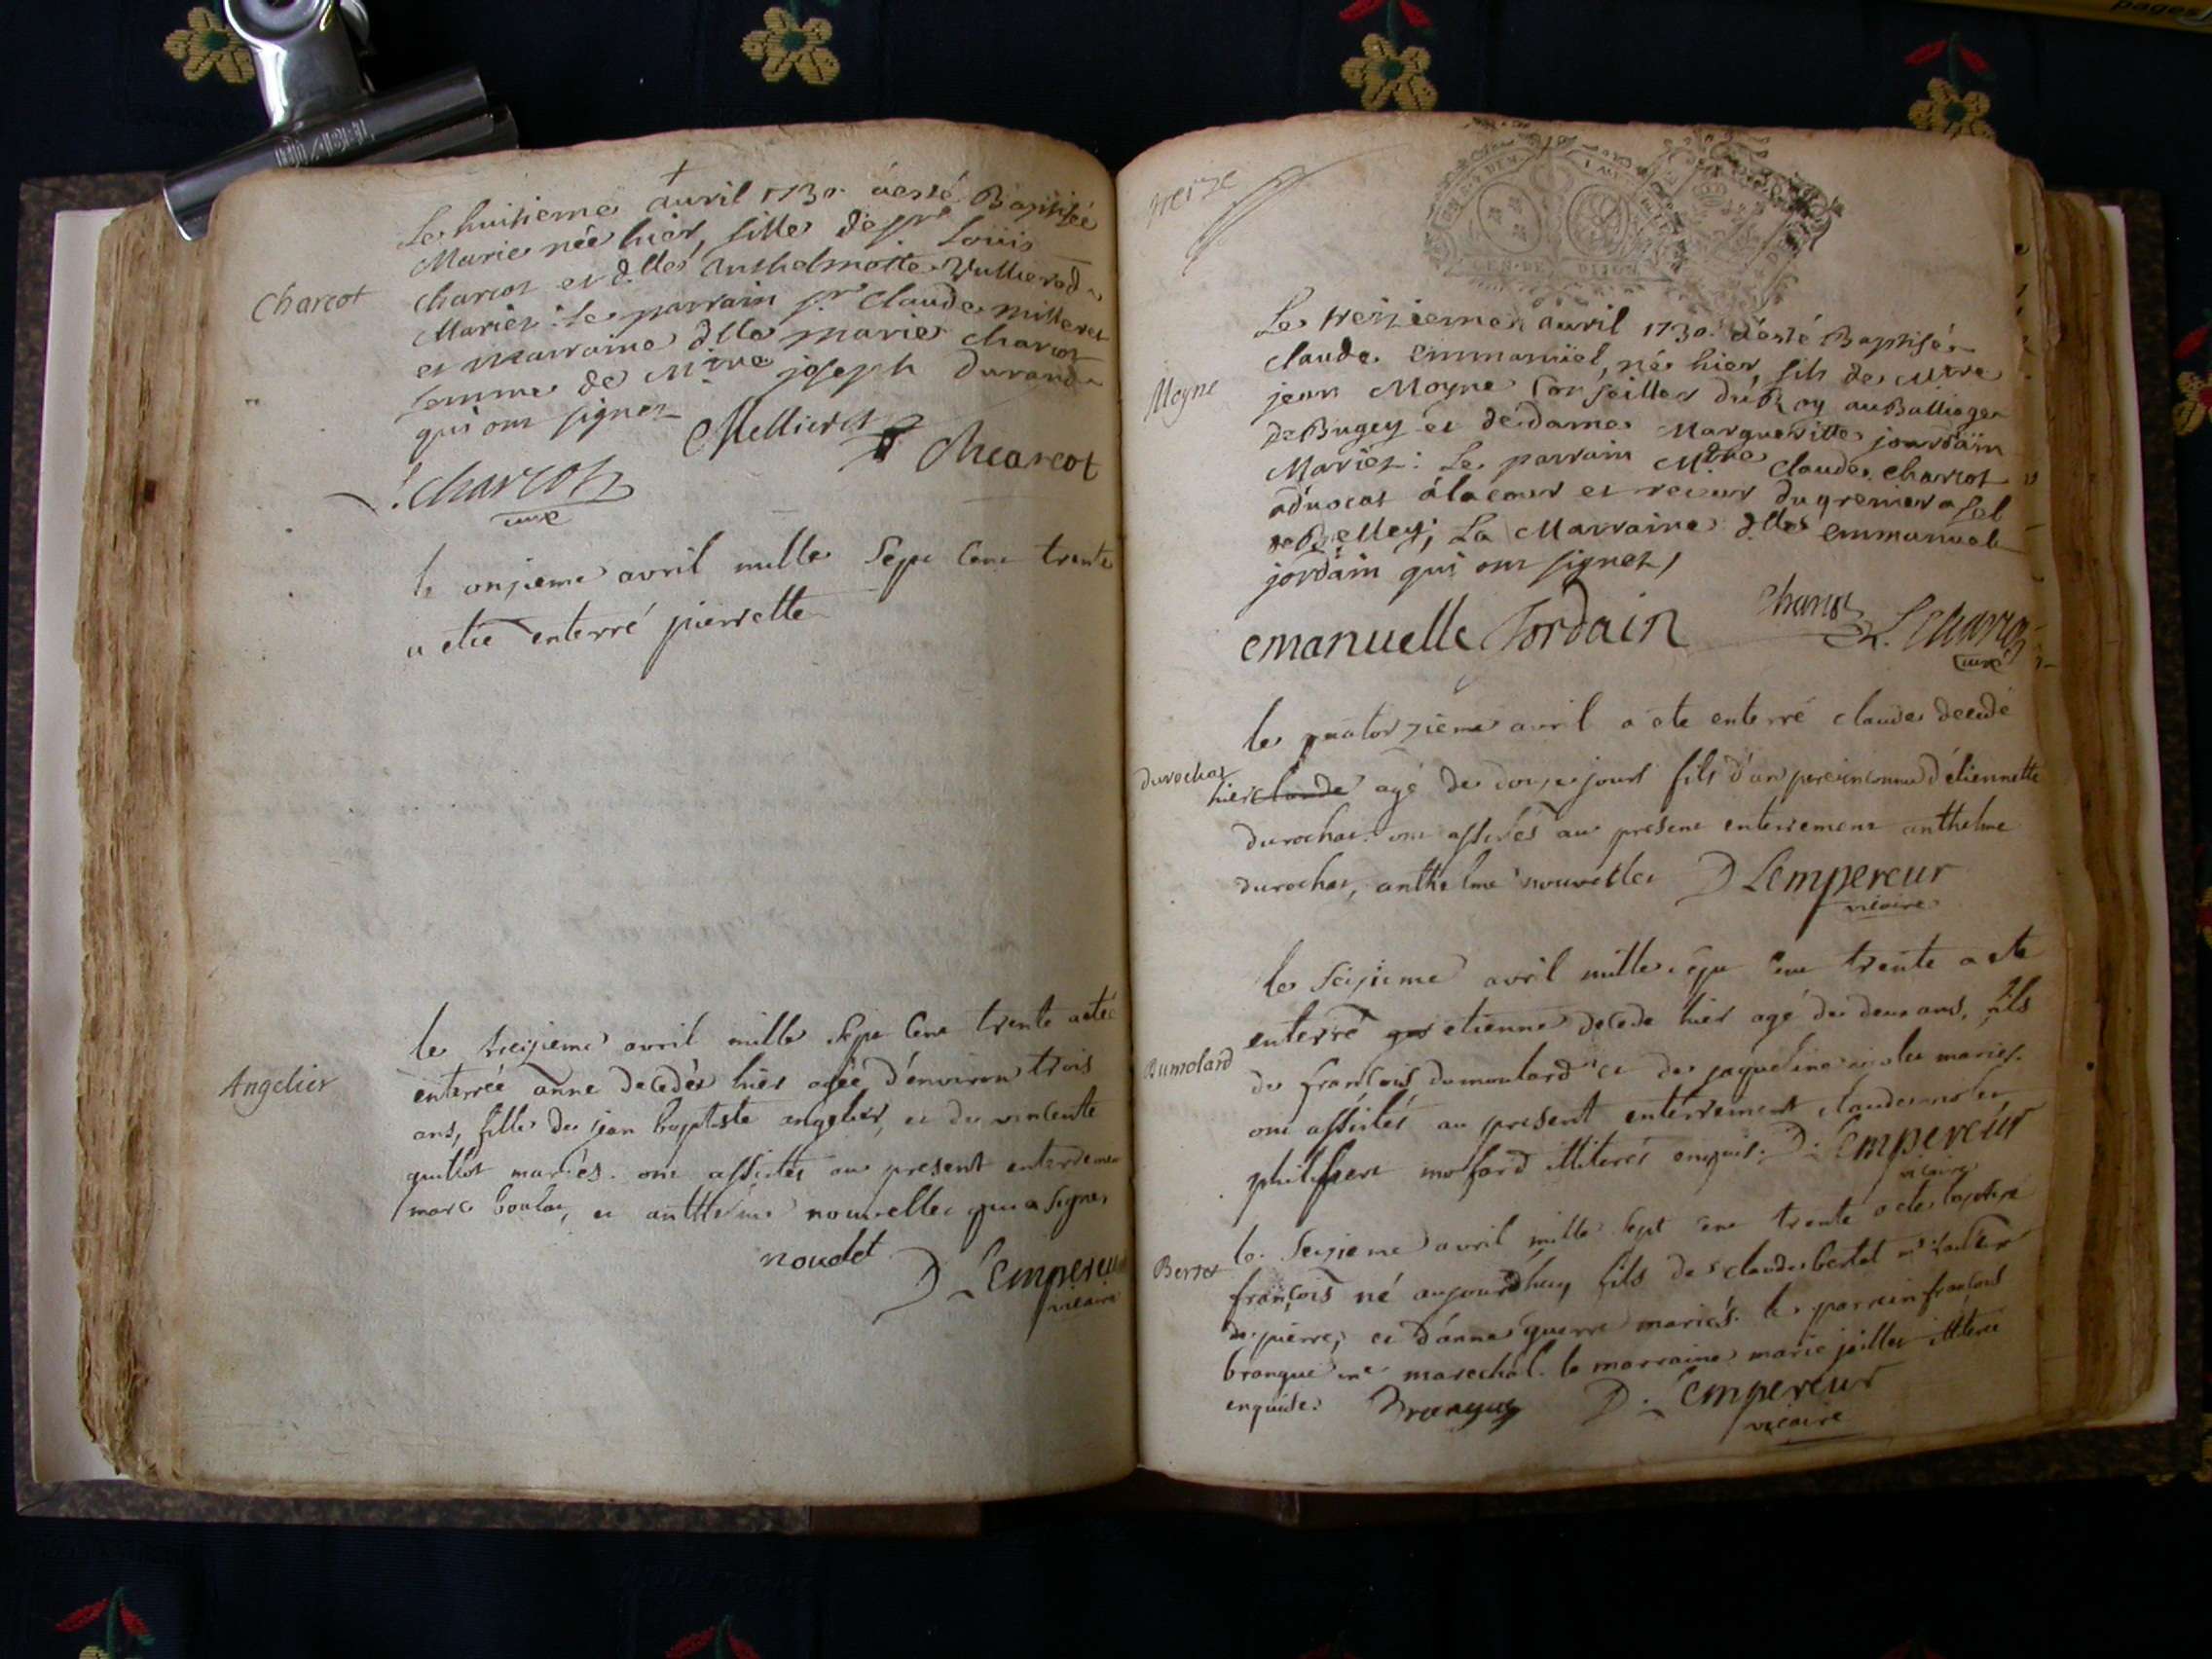 Le huitieme avril 1730 a esté Baptisée
Marie née hier, fille de sr Loüis
Charcot
charcot et dlle Anthelmette Vullierod
Mariez: Le parrain sr Claude milleret
et marraine dlle marie charcot
femme de Mtre joseph Durand
qui ont signez
Mellieret
Charcot
L. Charcot
curé
le onzieme avril mille Sept Cent trente
a eté enterré pierrette
le treizieme avril mille Sept Cent trente a eté
Angelier
enterrée anne decedée hier agée d'environ trois
ans, fille de jean baptiste angelier, et de vincente
guillot mariés. ont assistés au present enterrement
marc boulou, et anthelme nouvellet qui a signé
nouvlet
D. Lempereur
vicaire
treize
GEN. DE DIJON
Le treizieme avril 1730 a esté Baptisé
claude emmanüel, né hier, fils de Mtre
Moyne
jean Moyne Conseiller du Roy au Balliage
de Bugey et de dame Margueritte jourdain
Mariez: Le parrain Mtre Claude Charcot
advocat à la cour et recevr du grenier a sel
de Belley; La Marraine dlle emmanuel
jordain qui ont signez,
emanuelle Jordain
Charcot
L. Charcot
curé
le quatorzieme avril a ete enterré claude decedé
durochat
hier claude agé de douze jours fils d'un pere inconnu d'étiennette
durochat. ont assistés au present enterrement anthelme
durochat, anthelme nouvellet D Lempereur
vicaire
le seizieme avril mille sept Cent trente a ete
enterré etienne decede hier agé de deux ans, fils
Dumolard
de francois dumoulard et de jaqueline mariés.
ont assistés au present enterrement claude
philibert molard illiterés enquis. D. Lempereur
vicaire
le Seizieme avril mille Sept Cent trente a ete baptisé
Berret
françois né aujourdhuy fils de claude bertet me tailleur
de pierre, et d'anne guerre mariés. le parrain francois
branque me marechal. la marraine marie jaillet illiteree
enquise. Branque D. Lempereur
vicaire